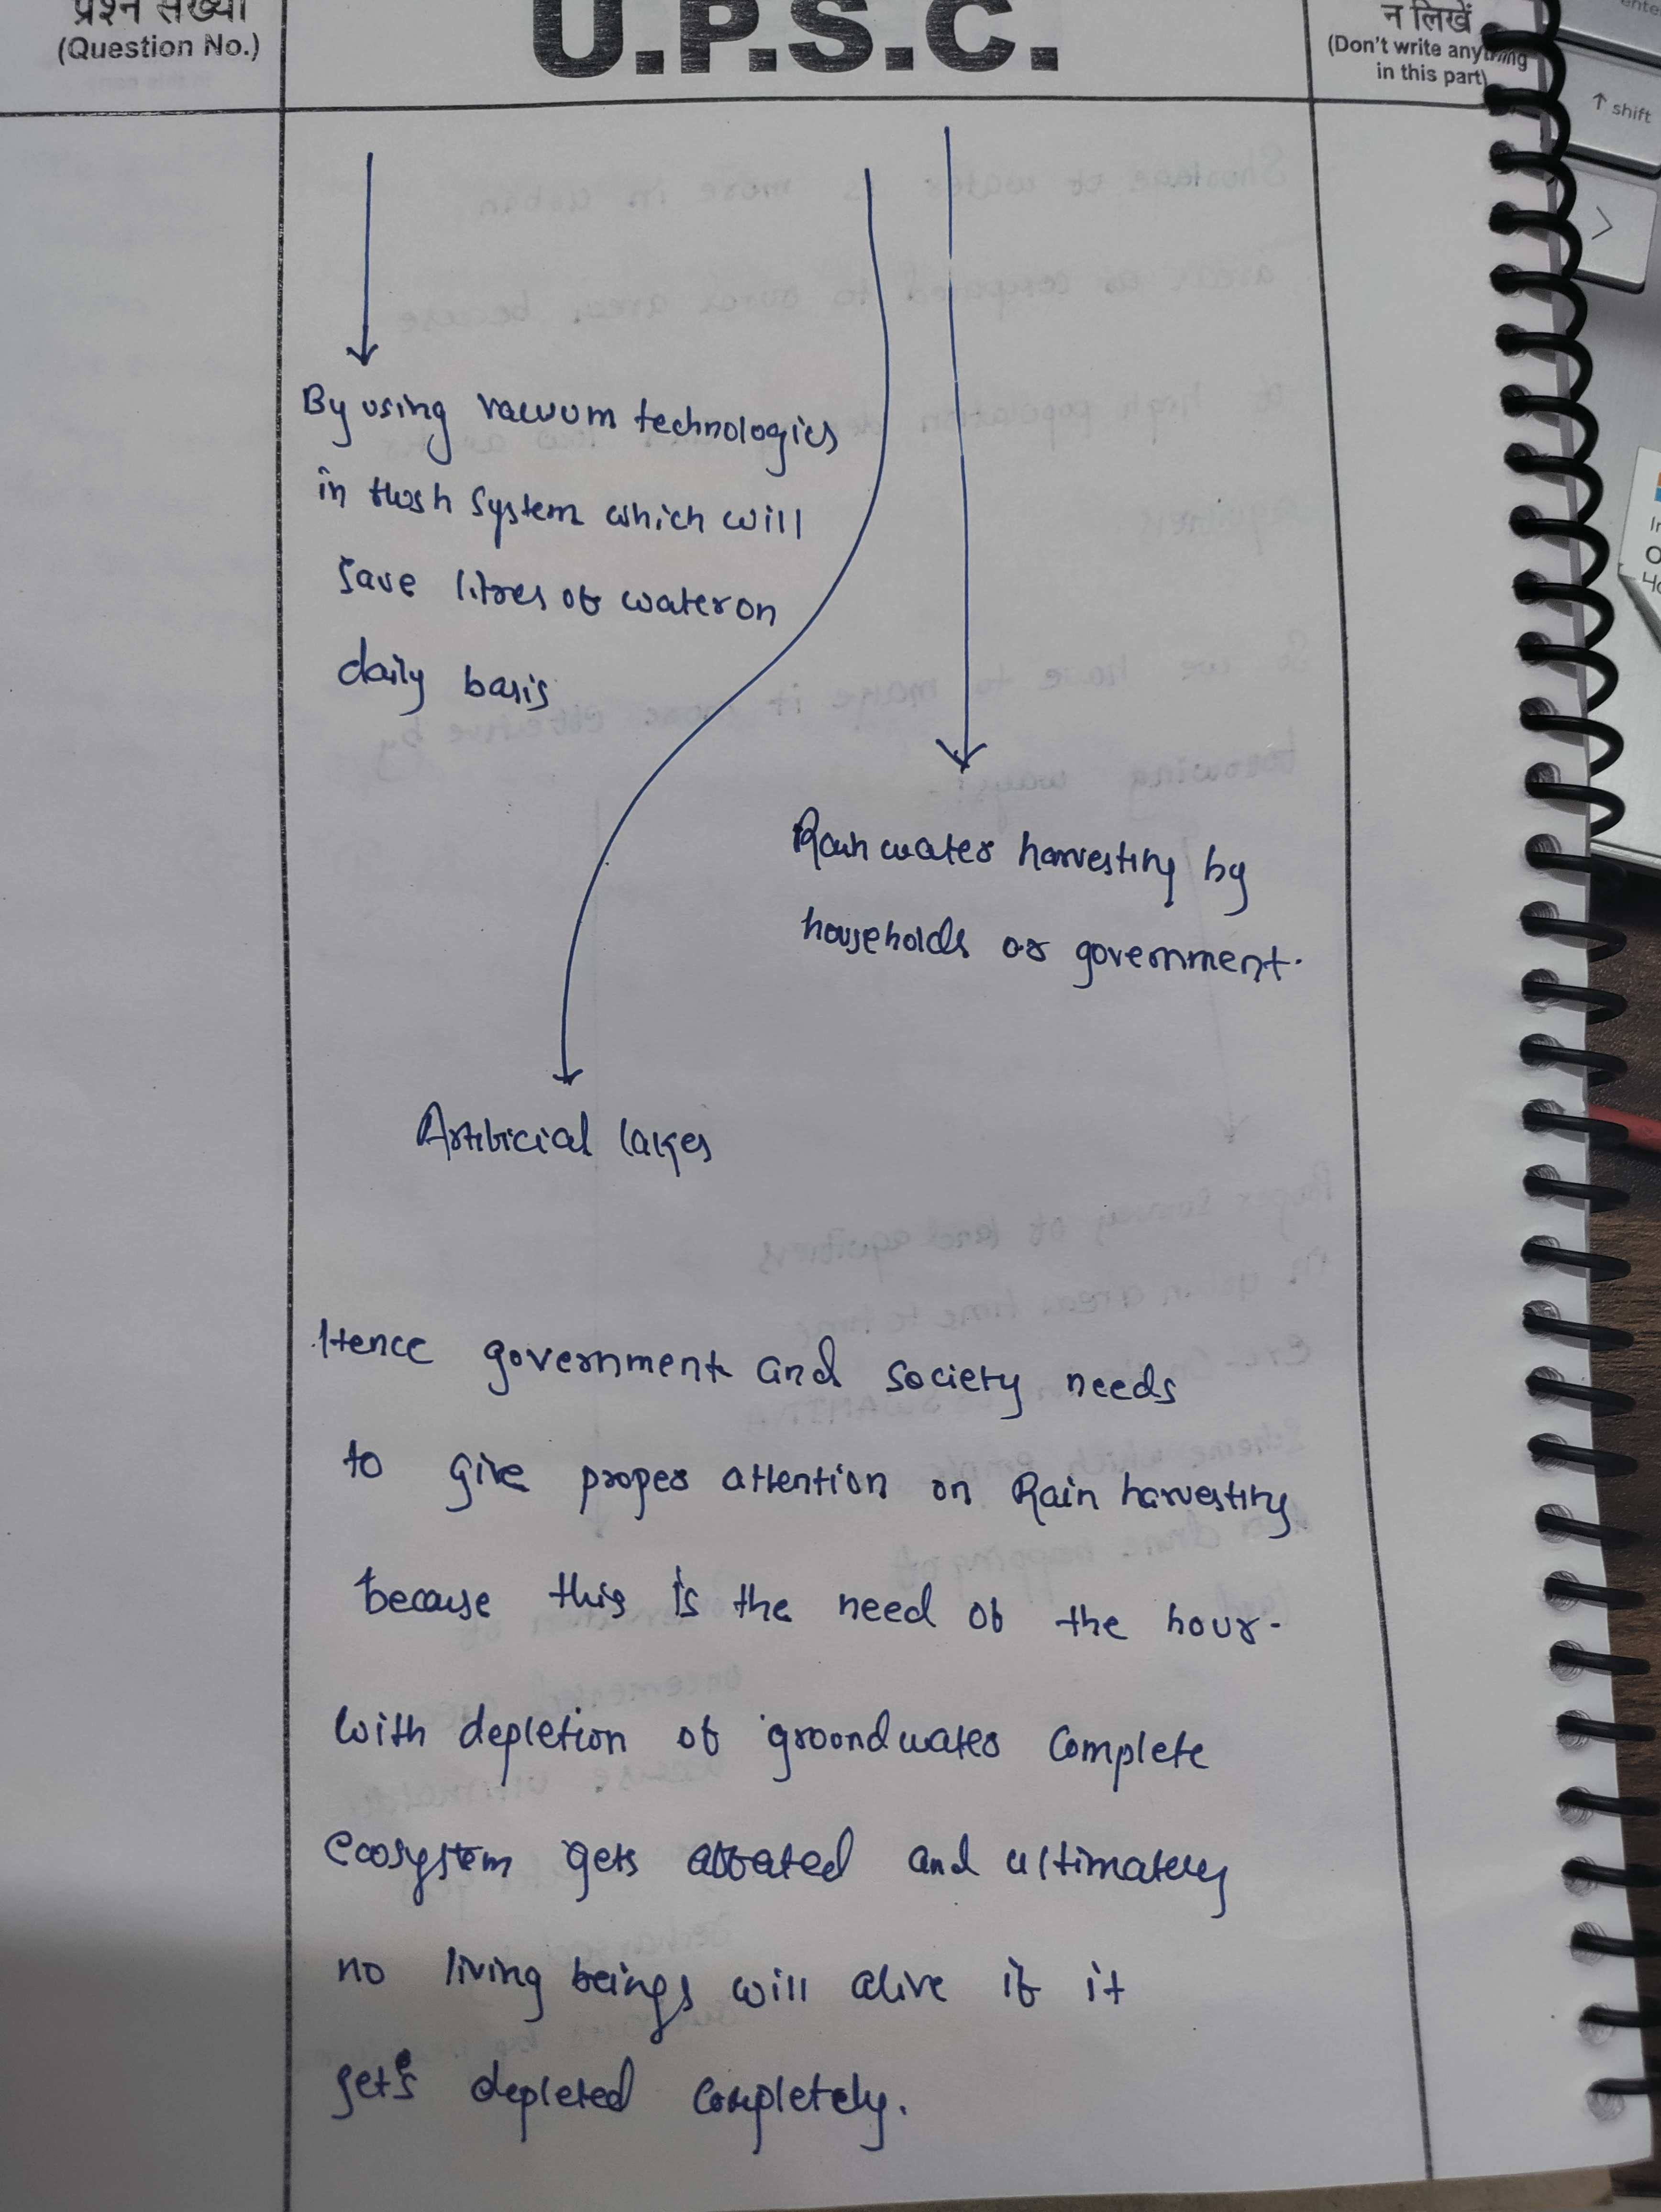 प्रश्न संख्या
(Question No.)
U.P.S.C.
न लिखें
(Don't write anything
in this part)
By using vacuum technologies
in flush system which will
save litres of water on
daily basis
Rain water harvesting by
households or government.
Artificial lakes
Hence government and society needs
to give proper attention on Rain harvesting
because this is the need of the hour.
With depletion of groondwater complete
ecosystem gets affated and ultimately
no living beings will alive if it
gets depleted completely.
↑ shift